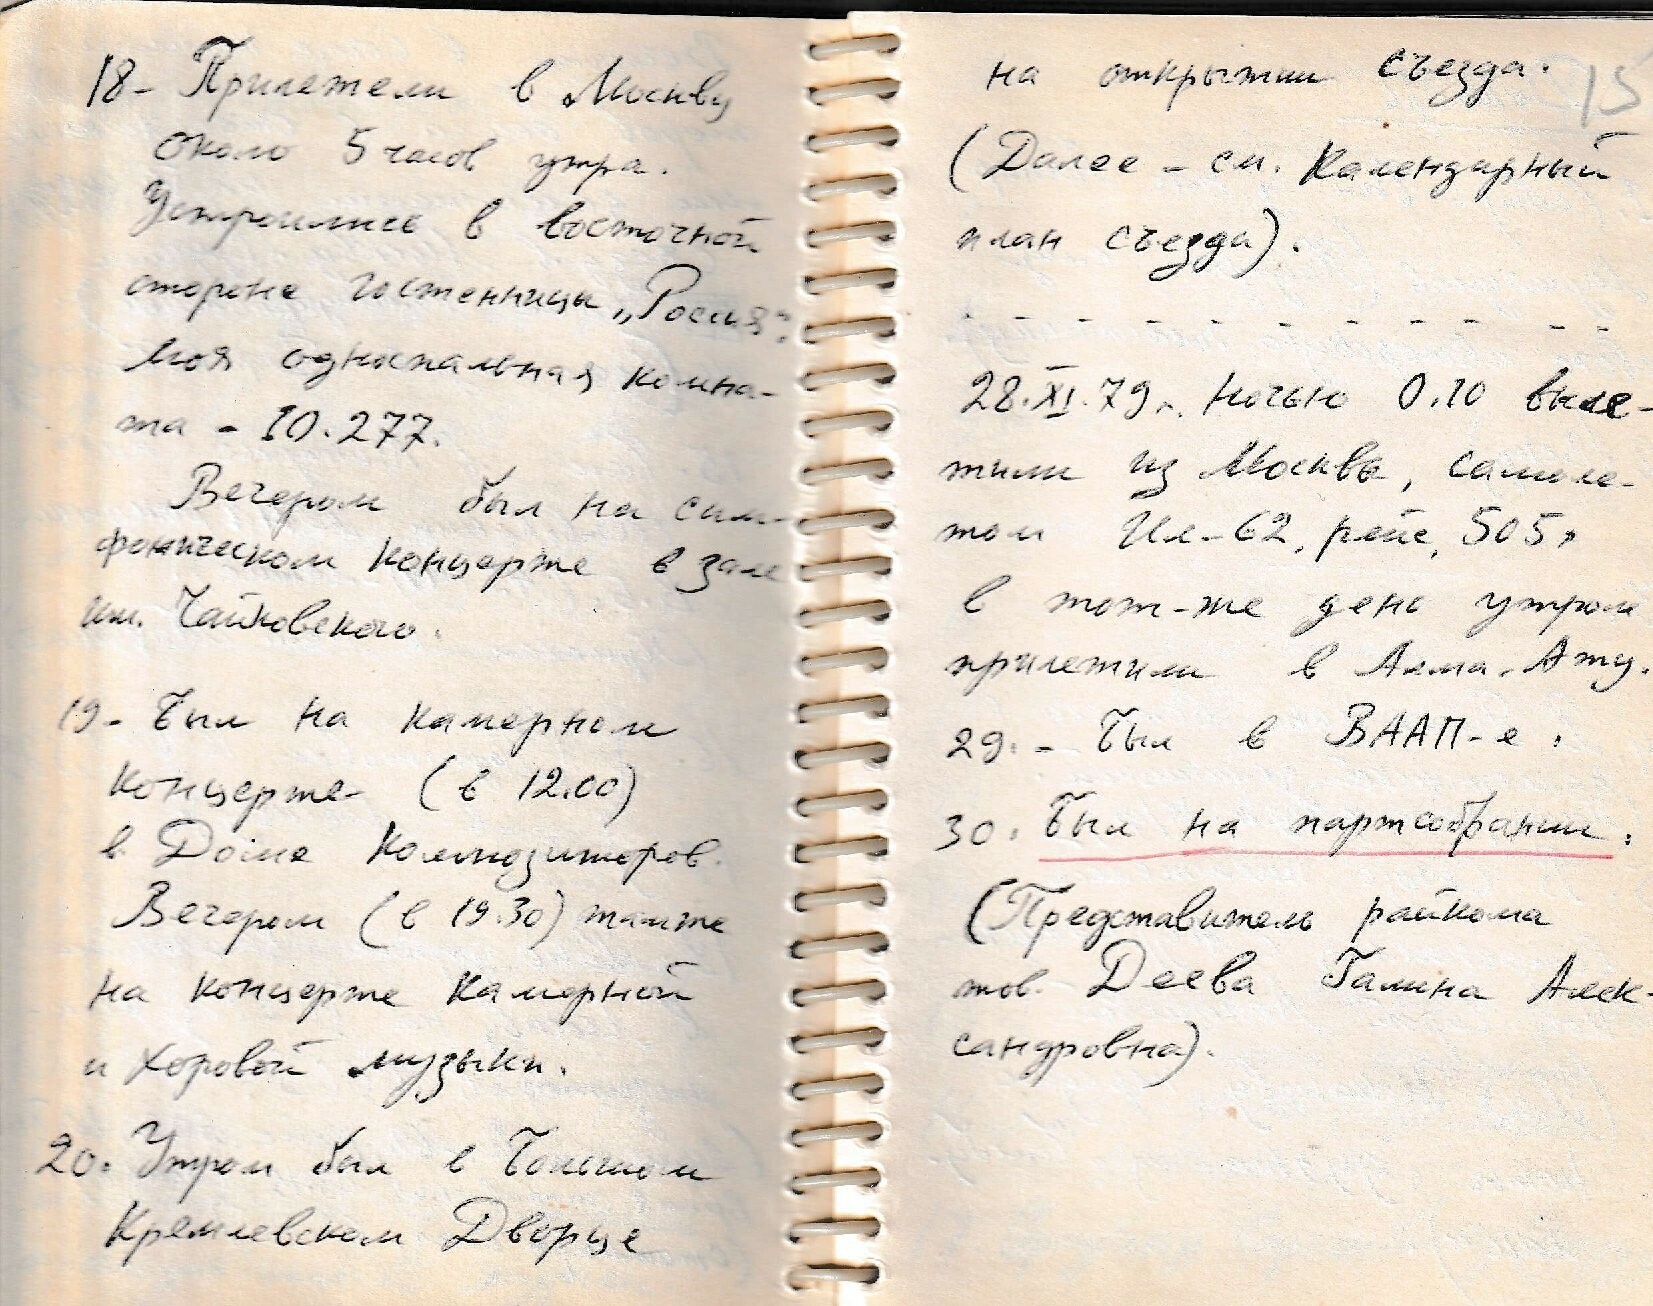 18- Прилетели в Москву
около 5 часов утра.
Устроились в восточной
стороне гостенницы „Россия".
Моя односпальная комна-
та - 10.277.
Вечером был на сим-
фоническом концерте в зале
им. Чайковского.
19- Был на камерном
концерте (в 12.00)
в Доме Композиторов.
Вечером (в 19.30) тамже
на концерте камерной
и хоровой музыки.
20. Утром был в Большом
Кремлевском Дворце
15
на открытии съезда.
(Далее - см. Календарный
план съезда).
- - - - - - - - - - - -
28.XI.79г. Ночью 0.10 выле-
тили из Москвы, самоле-
том Ил-62, рейс, 505,
в тот-же день утром
прилетили в Алма-Ату.
29. - Был в ВААП-е.
30. Был на партсобрании.
(Представитель райкома
тов. Деева Галина Алек-
сандровна).